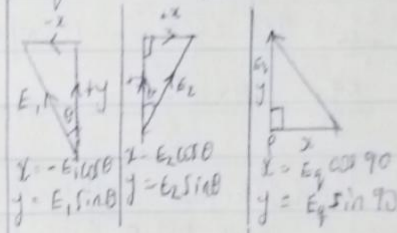 -x
E₁
θ
+y
x = -E₁cosθ
y = E₁sinθ
+x
θ
E₂
x = E₂cosθ
y = E₂sinθ
y
P
x
x = Eq cos 90
y = Eq sin 90